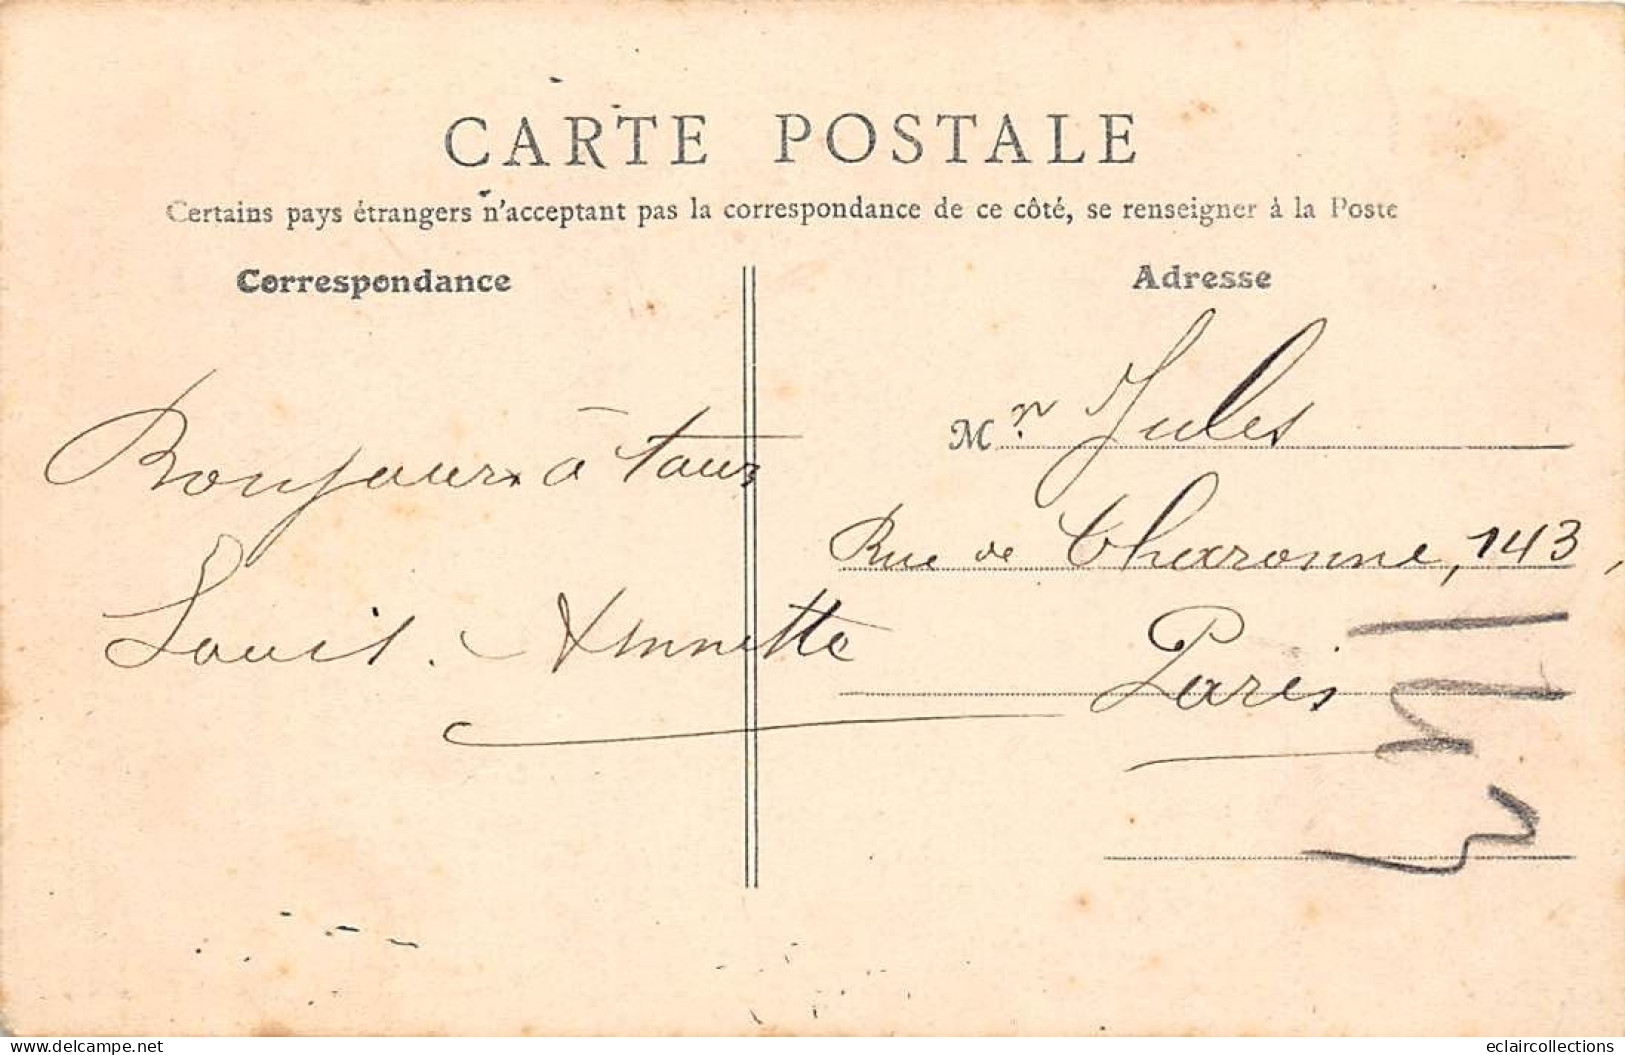 CARTE POSTALE
Certains pays étrangers n'acceptant pas la correspondance de ce côté, se renseigner à la Poste
Correspondance
Bonjour à tous
Louis. Annette
Adresse
Mr. Jules
Rue de Charonne, 143,
Paris
delcampe.net
eclaircollections